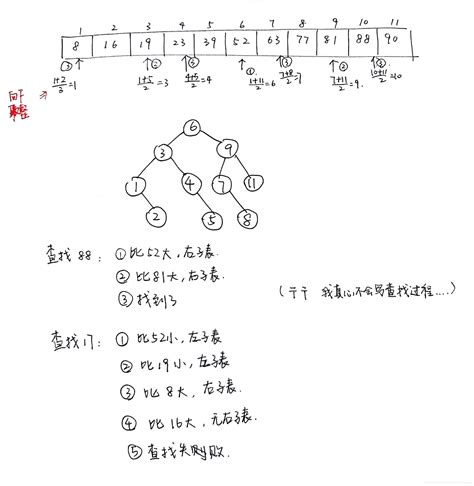 1 2 3 4 5 6 7 8 9 10 11
8 16 19 23 39 52 63 77 81 88 90
③ ② ④ ① ③ ② ③
1+2/2=1 1+5/2=3 4+5/2=4 1+11/2=6 7+8/2=7 7+11/2=9 10+11/2=10
向下
6
3 9
1 4 7 11
2 5 8
查找88: ①比52大,右子表.
②比81大,右子表.
③找到了
(于于 我真心不会写查找过程....)
查找17: ①比52小,左子表
②比19小,左子表
③比8大,右子表.
④比16大,无右子表.
⑤查找失败.